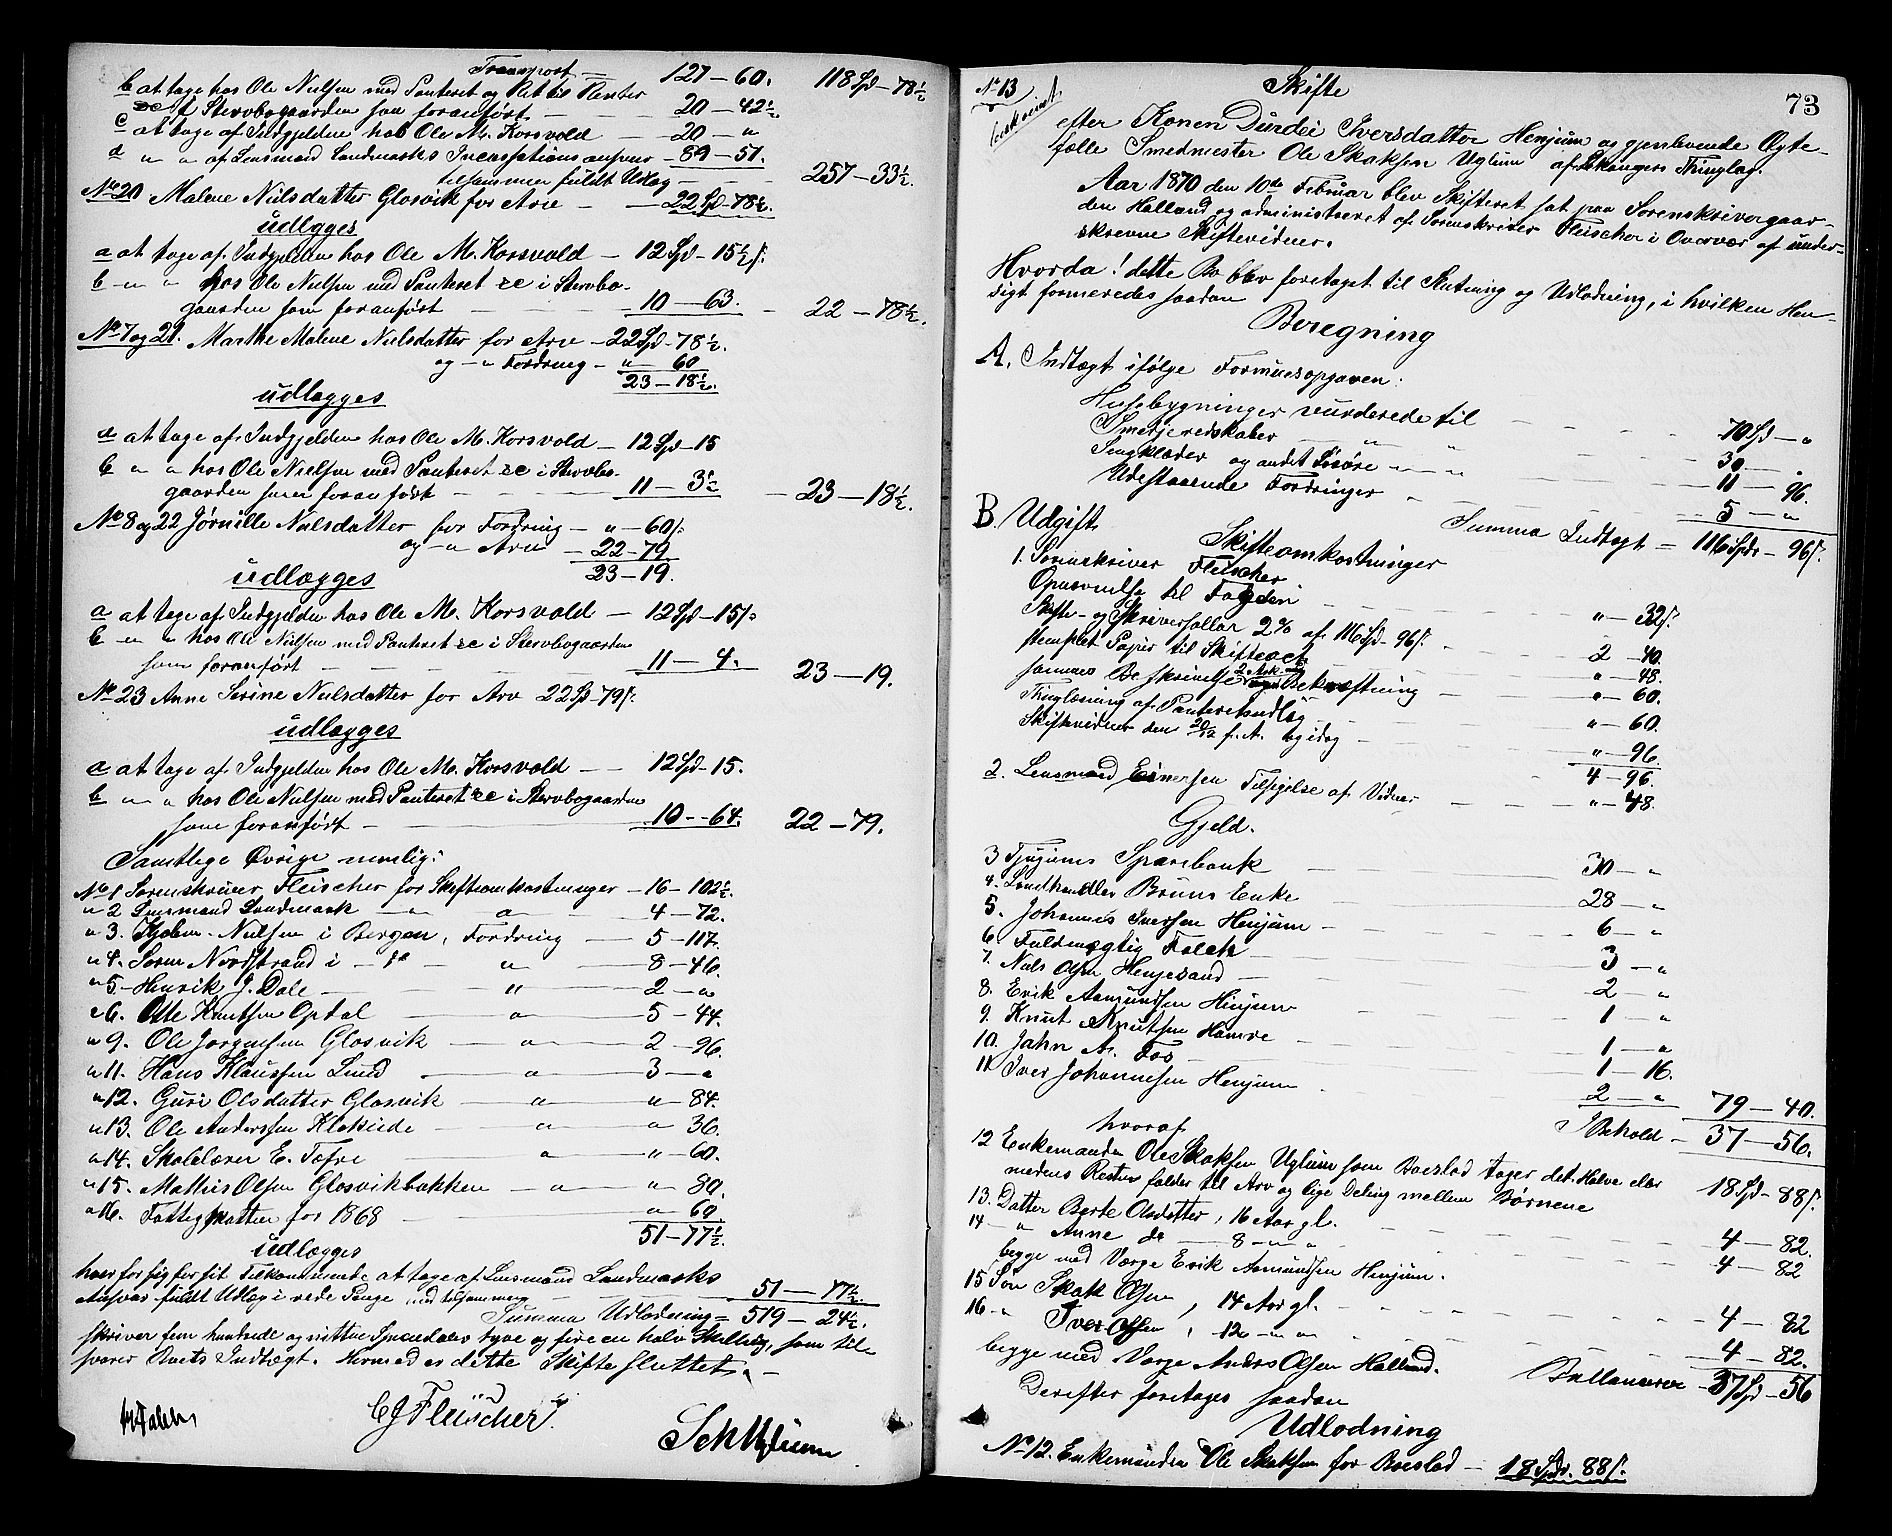 Transport — 127 — 60. 118 Spd — 78½
b at tage hos Ole Nielsen med Panteret og Ret til Renter
i Stervbogaarden som foranført — 20 — 42½
c at tage af Indgjelden hos Ole M. Korsvold — 20 — "
d " " af Lensmand Landmarks Incassations ansvar — 89 — 51.
tilsammen fuldt Udlæg — 257 — 33½.
No 20 Malene Nielsdatter Glosvik for Arv — 22 Spd — 78½.
udlægges
a at tage af Indgjelden hos Ole M. Korsvold — 12 Spd — 15½ s.
b — " " hos Ole Nielsen med Panteret &c i Stervbo-
gaarden som foranført — 10 — 63. — 22 — 78½.
No 7 og 21. Marthe Malene Nielsdatter for Arv — 22 Spd — 78½.
og — " Fordring — " — 60
23 — 18½.
udlægges
a at tage af Indgjelden hos Ole M. Korsvold — 12 Spd — 15
b " " hos Ole Nielsen med Panteret &c i Stervbo-
gaarden som foranført — 11 — 3½ — 23 — 18½.
No 8 og 22 Jørnille Nielsdatter for Fordring — " — 60 s.
og — " Arv — 22 — 79
23 — 19.
udlægges
a at tage af Indgjelden hos Ole M. Korsvold — 12 Spd — 15 s.
b — " " hos Ole Nielsen med Panteret &c i Stervbogaarden
som foranført — 11 — 4. 23 — 19.
No 23 Anne Serine Nielsdatter for Arv 22 Spd — 79 s.
udlægges
a at tage af Indgjelden hos Ole M. Korsvold — 12 Spd — 15.
b — " " hos Ole Nielsen med Panteret &c i Stervbogaarden
som foranført — 10 — 64. 22 — 79.
Samtlige Øvrige nemlig:
No 1 Sorenskriver Fleischer for Skifteomkostninger — 16 — 102½.
" 2 Lensmand Landmark — " — " — 4 — 72.
" 3. Nielsen i Bergen, Fordring — 5 — 117.
" 4. Søren Nordstrand i — do — " — 8 — 46.
" 5 — Henrik J. Dale — " — 2 — "
" 6. Ole Knutsen Opdal — " — 5 — 44.
" 9. Ole Jørgensen Glosvik — " — 2 — 96.
" 11. Hans Klaussen Lund — " — 3 — "
" 12. Guri Olsdatter Glosvik — " — " — 84.
" 13. Ole Anderssen — " — " 36.
" 14. Skolelærer E. Tofre — " — " — 60.
" 15. Mathis Olsen Glosvikbakken — " — " — 80.
" 16. Fattigskatten for 1868 — " — 60
51 — 77½.
udlægges
hver for sig for sit Tilkommende at tage af Lensmand Landmarks
Ansvar fuldt Udlæg i rede Penge med tilsammen — 51 — 77½.
Summa Udlodning = 519 — 24½.
skriver fem hundrede og nitten Speciedaler tyve og fire en halv Skilling, som til-
svarer Boets Indtægt. Hermed er dette Skifte sluttet. —
CJ Fleischer
No 13
73
Skifte
efter Konen Durdei Iversdatter Henjum og gjenlevende Ægte-
fælle Smedmester Ole Skaksen Uglum af Lekangers Thinglag.
Aar 1870 den 10de Februar blev Skifteret sat paa Sorenskrivergaar-
den Halland og administreret af Sorenskriver Fleischer i Overvær af under-
skrevne Skiftevidner.
Hvorda! dette Bo blev foretaget til Slutning og Udlodning, i hvilken Hen-
sigt formeredes saadan
Beregning
A. Indtægt ifølge Formuesopgaven:
Husebygninger vurderede til — 70 Spd — "
Smedjeredskaber — " — " — 30 — "
Sengklæder og andet Løsøre — " — " — 11 — 96.
Udestaaende Fordringer — 5 — "
Summa Indtægt — 116 Spd — 96 s.
B. Udgift
Skifteomkostninger
1. Sorenskriver Fleischer
Opnævnelse til Fogden — " — 32 s.
Skifte- og Skriversallar 2% af 116 Spd — 96 s. — 2 — 40.
stemplet Papir til Skifteact — " — 48.
sammes Beskrivelse 2 Ark og Bekræftning — " — 60.
Thinglæsning af Panteretsudlæg — " — 60.
Skiftevidner den 20/12 f. A. og idag — " — 96
4 — 96.
2. Lensmand Einersen Tilsigelse af Vidner — " — 48.
Gjeld.
3 Tjugums Sparebank — 30 — "
4. Landhandler Bruns Enke — 28 — "
5. Johannes Iversen Henjum — 6 — "
6. Fuldmægtig Falch — 3 — "
7. Niels Olsen Henjesand — 2 — "
8. Erik Aamundsen Henjum — 1 — "
9. Knut Knutsen Hamre — 1 — "
10. Jahn A. Fos — 1 — 16.
11 Iver Johannesen Henjum — 2 — " 79 — 40.
I Behold — 37 — 56.
hvoraf
12 Enkemanden Ole Skaksen Uglum som Boeslod tager det Halve eller 18 Spd — 88 s.
medens Resten falder til Arv og lige Deling mellem Børnene
13. Datter Berte Olsdatter, 16 Aar gl. — 4 — 82.
14 — " Anne do — 8 — " " — 4 — 82
begge med Værge Erik Aamundsen Henjum.
15 Søn Skak Olsen, 14 Aar gl. — 4 — 82
16 — " Iver Olsen, 12 — " " — 4 — 82.
begge med Værge Anders Olsen Halland. Ballancerer — 37 Spd — 56
Derefter foretages saadan
Udlodning
No 12. Enkemanden Ole Skaksen for Boeslod — 18 Spd. 88 s.